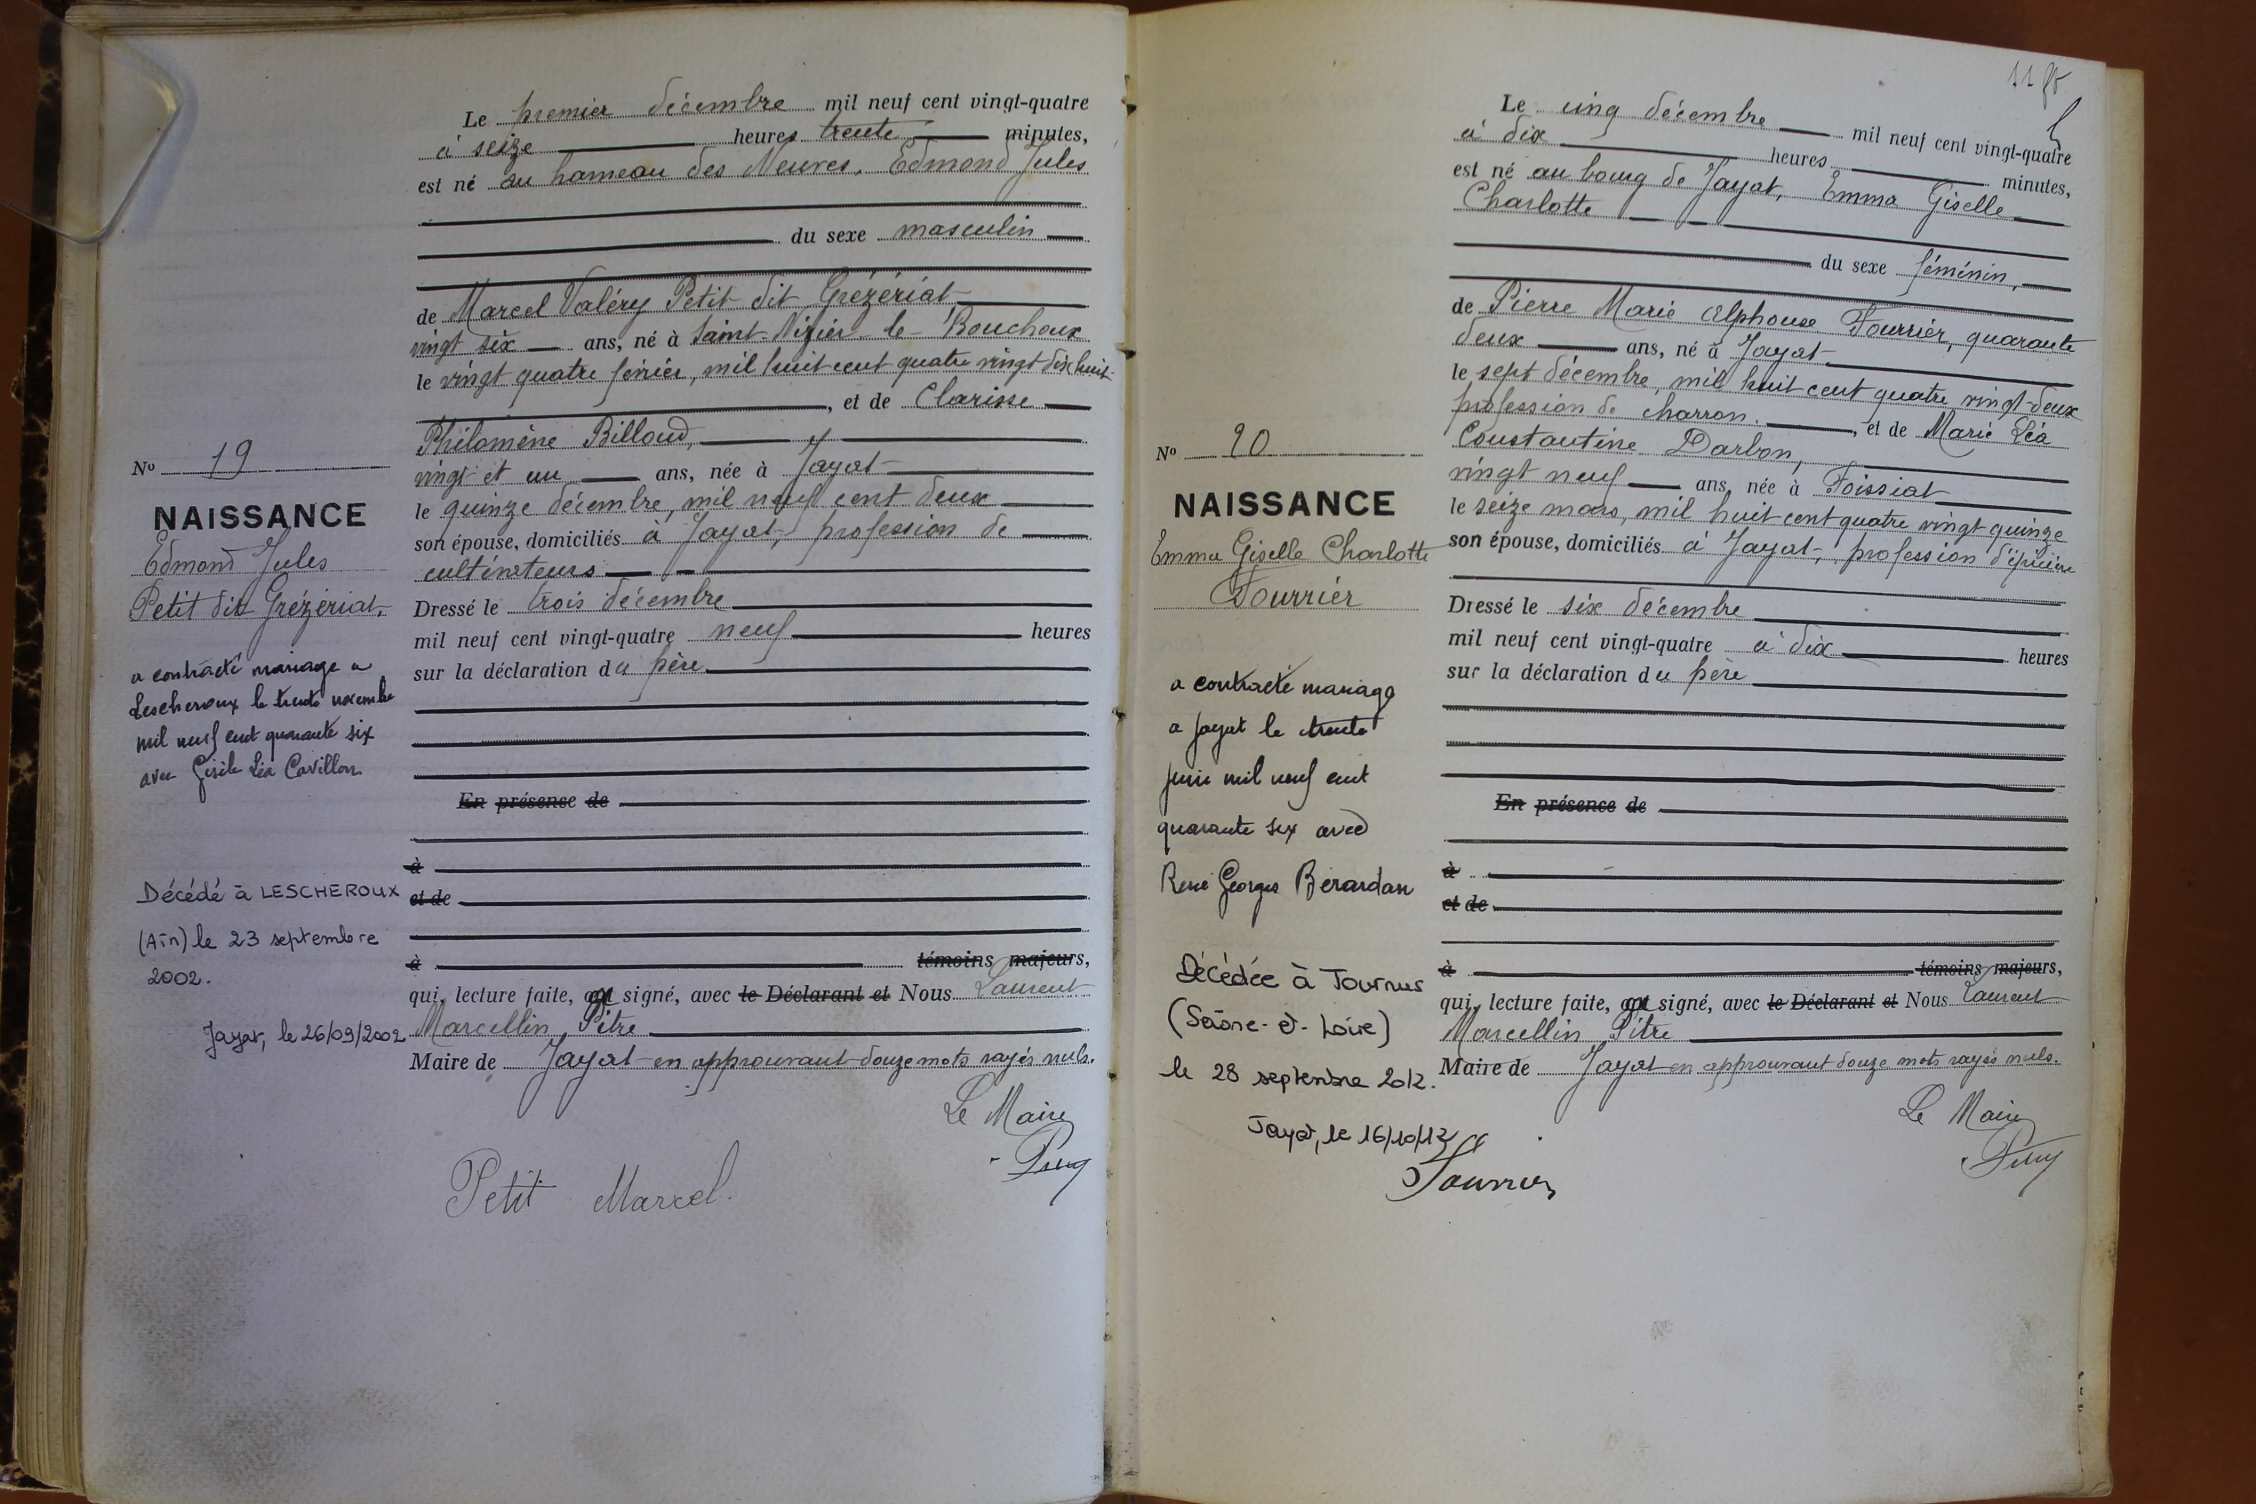 Le premier décembre mil neuf cent vingt-quatre
à seize heures trente minutes,
est né au hameau des Neuves, Edmond Jules
du sexe masculin
de Marcel Valéry Petit dit Grézériat
vingt six ans, né à Saint-Nizier-le-Bouchoux
le vingt quatre février, mil huit cent quatre vingt dix huit
, et de Clarisse
Philomène Billoud,
vingt et un ans, née à Jayat
le quinze décembre, mil neuf cent deux
son épouse, domiciliés à Jayat, profession de
cultivateurs
Dressé le trois décembre
mil neuf cent vingt-quatre neuf heures
sur la déclaration du père
En présence de
à
et de
à témoins majeurs,
qui, lecture faite, a signé, avec le Déclarant et Nous Laurent
Marcellin Pitre
Maire de Jayat en approuvant douze mots rayés nuls.
Le Maire
Petit Marcel
No 19
NAISSANCE
Edmond Jules
Petit dit Grézériat,
a contracté mariage a
Lescheroux le trente novembre
mil neuf cent quarante six
avec Gisèle Léa Cavillon
Décédé à LESCHEROUX
(Ain) le 23 septembre
2002.
Jayat, le 26/09/2002
11
Le cinq décembre mil neuf cent vingt-quatre
à dix heures minutes,
est né au bourg de Jayat, Emma Giselle
Charlotte
du sexe féminin,
de Pierre Marie Alphonse Fourrier, quarante
deux ans, né à Jayat
le sept décembre, mil huit cent quatre vingt-deux
profession de charron. , et de Marie Léa
Constantine Darbon,
vingt neuf ans, née à Foissiat
le seize mars, mil huit cent quatre vingt quinze
son épouse, domiciliés à Jayat, profession d'épicière
Dressé le six décembre
mil neuf cent vingt-quatre à dix heures
sur la déclaration du père
En présence de
à
et de
à témoins majeurs,
qui, lecture faite, a signé, avec le Déclarant et Nous Laurent
Marcellin Pitre
Maire de Jayat en approuvant douze mots rayés nuls.
Le Maire
Fourrier
No 20
NAISSANCE
Emma Giselle Charlotte
Fourrier
a contracté mariage
a Jayat le trente
juin mil neuf cent
quarante six avec
René Georges Bérardan
Décédée à Tournus
(Saône-et-Loire)
le 28 septembre 2012.
Jayat, le 16/10/12